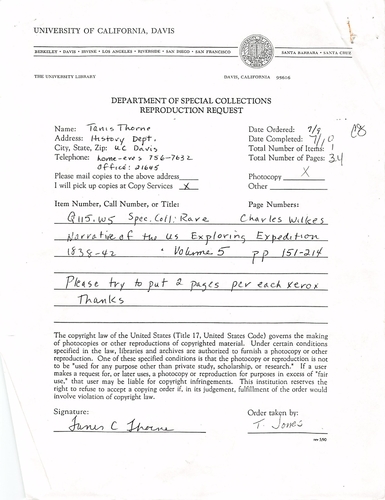 UNIVERSITY OF CALIFORNIA, DAVIS
BERKELEY • DAVIS • IRVINE • LOS ANGELES • RIVERSIDE • SAN DIEGO • SAN FRANCISCO
SANTA BARBARA • SANTA CRUZ
THE UNIVERSITY LIBRARY
DAVIS, CALIFORNIA 95616
DEPARTMENT OF SPECIAL COLLECTIONS
REPRODUCTION REQUEST
Name: Tanis Thorne
Date Ordered: 7/9
Address: History Dept.
Date Completed: 7/10
City, State, Zip: UC Davis
Total Number of Items: 1
Telephone: home-eves 756-7632
Total Number of Pages: 34
Office: 21645
Please mail copies to the above address
Photocopy X
I will pick up copies at Copy Services X
Other
Item Number, Call Number, or Title:
Page Numbers:
Q115.W5 Spec. Coll: Rare Charles Wilkes
Narrative of the US Exploring Expedition
1838-42 • Volume 5 pp 151-214
Please try to put 2 pages per each xerox
Thanks
The copyright law of the United States (Title 17, United States Code) governs the making
of photocopies or other reproductions of copyrighted material. Under certain conditions
specified in the law, libraries and archives are authorized to furnish a photocopy or other
reproduction. One of these specified conditions is that the photocopy or reproduction is not
to be "used for any purpose other than private study, scholarship, or research." If a user
makes a request for, or later uses, a photocopy or reproduction for purposes in excess of "fair
use," that user may be liable for copyright infringements. This institution reserves the
right to refuse to accept a copying order if, in its judgement, fulfillment of the order would
involve violation of copyright law.
Signature:
Order taken by:
Tanis C Thorne
T. Jones
rev 3/90